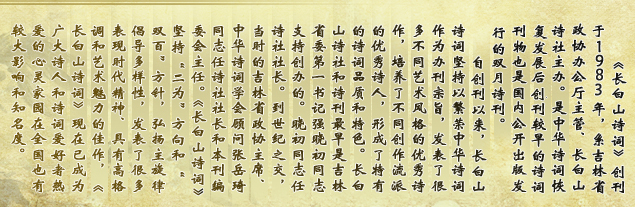 《长白山诗词》创刊
于1983年，系吉林省
政协办公厅主管、长白山
诗社主办。是中华诗词恢
复发展后创刊较早的诗词
刊物也是国内公开出版发
行的双月诗刊。
自创刊以来，长白山
诗词坚持以繁荣中华诗词
作为办刊宗旨，发表了很
多不同艺术风格的优秀诗
作，培养了不同创作流派
的优秀诗人，形成了特有
的诗词品质和特色。长白
山诗社和诗刊最早是吉林
省委第一书记强晓初同志
支持创办的。晓初同志任
诗社社长。到世纪之交，
当时的吉林省政协主席、
中华诗词学会顾问张岳琦
同志任诗社社长和本刊编
委会主任。《长白山诗词》
坚持“二为”方向和“
双百”方针，弘扬主旋律
倡导多样性，发表了很多
表现时代精神、具有高格
调和艺术魅力的佳作，《
长白山诗词》现在已成为
广大诗人和诗词爱好者热
爱的心灵家园在全国也有
较大影响和知名度。